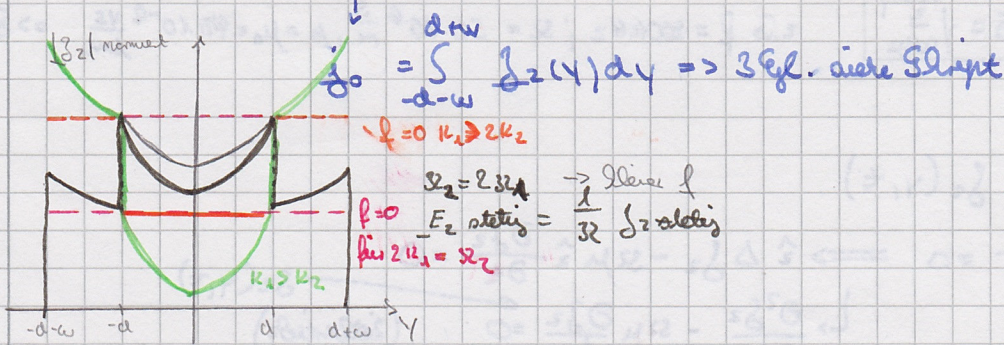 |J₂| normiert
J₀ = ∫ J₂(y) dy => 3 Egl. siehe Skript
d+w
-d-w
f=0 κ₁ > 2κ₂
ϰ₂ = 2ϰ₁ → kleine f
E₂ stetig = 1/ϰ J₂ stetig
f=0
für 2κ₁ = ϰ₂
κ₁ > κ₂
-d-w -d d d+w y